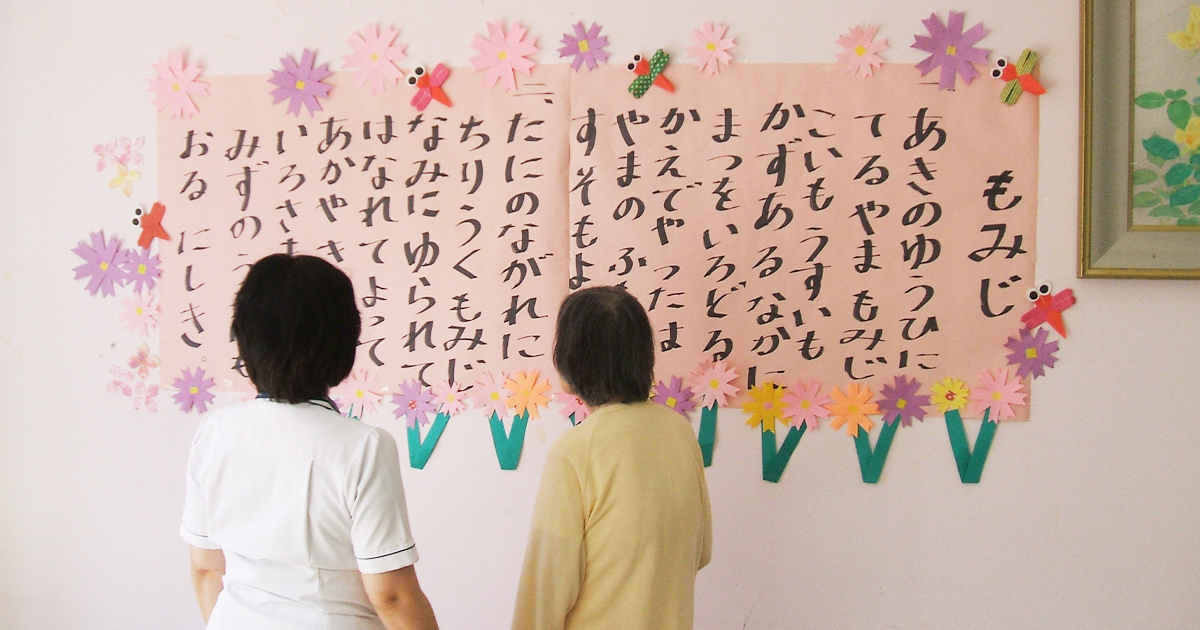 もみじ
一、
あきのゆうひに
てるやま もみじ
こいも うすいも
かずあるなかに
まつをいろどる
かえでや つたよ
やまの ふ
すそもよ
二、
たにのながれに
ちりうく もみじ
なみに ゆられて
はなれて よって
あかや き
いろさま
みずの う も
おる にしき。